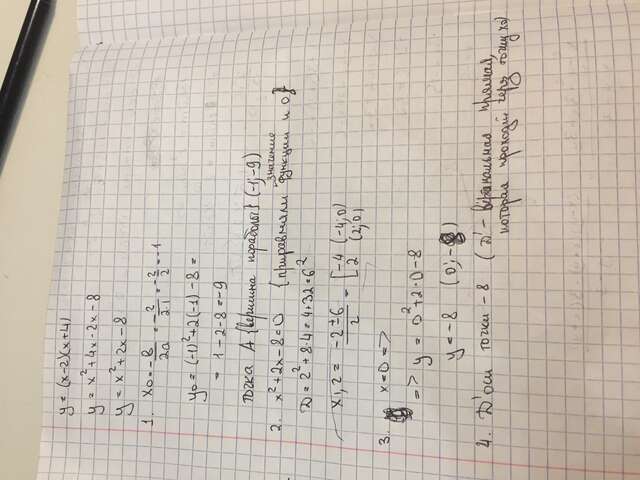 y = (x-2)(x+4)
y = x² + 4x - 2x - 8
y = x² + 2x - 8
1. x0 = -в/2a = -2/2·1 = -2/2 = -1
y0 = (-1)² + 2(-1) - 8 =
= 1 - 2 - 8 = -9
точка A {вершина параболы} (-1; -9)
2. x² + 2x - 8 = 0 {приравняли значение функции к 0}
D = 2² + 8·4 = 4 + 32 = 6²
x1,2 = -2±6/2 = [-4 (-4; 0) 2 (2; 0)
3. x = 0 =>
=> y = 0² + 2·0 - 8
y = -8 (0; -8)
4. D' оси точки -8 (D' - вертикальная прямая,
которая проходит через точку x0)